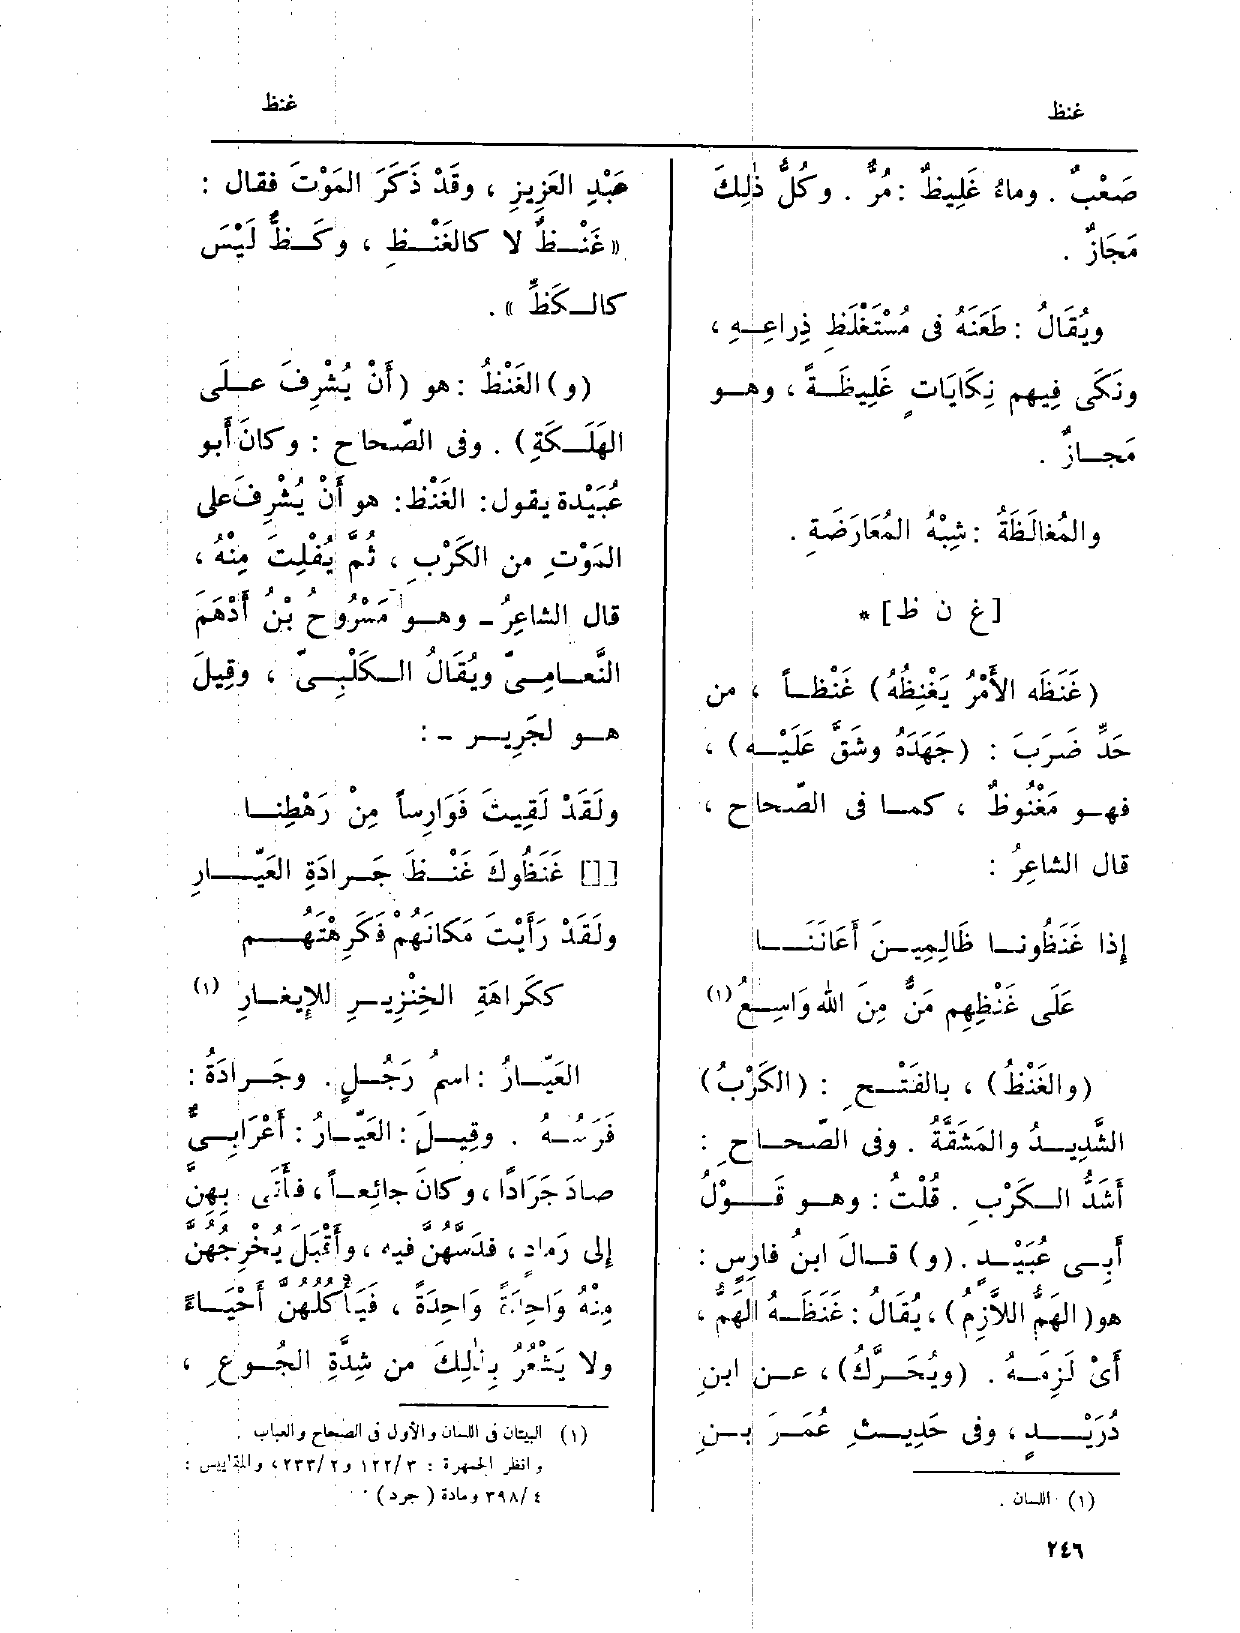 غنظ
غنظ
صَعْبٌ . وماءٌ غَلِيظٌ : مُرٌّ . وكُلُّ ذٰلِكَ
مَجَازٌ .
ويُقَالُ : طَعَنَهُ فى مُسْتَغْلَظِ ذِراعِـهِ ،
ونَكَى فِيهِم نِكَايَاتٍ غَلِيظَـةً ، وهـو
مَجـازٌ .
والمُغالَظَةُ : شِبْهُ المُعَارَضَةِ .
[ غ ن ظ ] *
( غَنَظَه الأَمْرُ يَغْنِظُهُ ) غَنْظـاً ، من
حَدِّ ضَرَبَ : ( جَهَدَهُ وشَقَّ عَلَيْـه ) ،
فهـو مَغْنُوظٌ ، كمـا فى الصّحاح ،
قال الشاعِرُ :
إذا غَنَظُونـا ظَالِمِيـنَ أَعَانَنَـا
عَلَى غَنْظِهِم مَنٌّ مِنَ اللهِ وَاسِـعُ (١)
( والغَنْظُ ) ، بالفَتْـح ِ : ( الكَرْبُ )
الشَّدِيـدُ والمَشَقَّةُ . وفى الصّحـاح ِ :
أَشَدُّ الـكَرْبِ . قُلْتُ : وهـو قَـوْلُ
أَبِـى عُبَيْـدٍ . ( و ) قـالَ ابنُ فارِسٍ :
هو ( الهَمُّ اللاَّزِمُ ) ، يُقَالُ : غَنَظَـهُ الهَمُّ ،
أَىْ لَزِمَـهُ . ( ويُحَـرَّكُ ) ، عـن ابنِ
دُرَيْـدٍ ، وفى حَدِيـثِ عُمَـرَ بـنِ
(١) اللسان .
عَبْدِ العَزِيزِ ، وقَدْ ذَكَرَ المَوْتَ فقال :
« غَنْـظٌ لا كالغَنْـظِ ، وكَـظٌّ لَيْسَ
كالـكَظِّ » .
( و ) الغَنْظُ : هو ( أَنْ يُشْرِفَ عـلَى
الهَلَـكَةِ ) . وفى الصّحاح : وكانَ أَبو
عُبَيْدة يقول : الغَنْظ : هو أَنْ يُشْرِفَ على
المَوْتِ من الكَرْبِ ، ثُمَّ يُفْلِتَ مِنْهُ ،
قال الشاعِرُ ـ وهـو مَسْرُوحُ بْنُ أَدْهَمَ
النَّعـامِـىّ ويُقَالُ الـكَلْبِـىّ ، وقِيلَ
هـو لجَرِيـر ـ :
ولَقَدْ لَقِيتَ فَوَارِساً مِنْ رَهْطِنـا
[] غَنَظُوكَ غَنْـظَ جَـرادَةِ العَيّـارِ
ولَقَدْ رَأَيْتَ مَكانَهُمْ فَكَرِهْتَهُـم
ككَراهَةِ الخِنْزِيـرِ للإِيغـارِ (١)
العَيّـارُ : اسمُ رَجُـلٍ . وجَـرادَةُ :
فَرَسُـهُ . وقِيـلَ : العَيّـارُ : أَعْرَابِـىٌّ
صادَ جَرَادًا ، وكانَ جائِعـاً ، فأَتَى بِهِنَّ
إلى رَمادٍ ، فدَسَّهُنَّ فيه ، وأَقْبَلَ يُخْرِجُهُنَّ
مِنْهُ وَاحِدَةً وَاحِدَةً ، فَيَأْكُلُهُنَّ أَحْيَـاءً
ولا يَشْعُرُ بِذٰلِكَ من شِدَّةِ الجُـوع ِ ،
(١) البيتان فى اللسان والأول فى الصحاح والعباب
وانظر الجمهرة : ٣/ ١٢٢ و٢/ ٢٣٣ ، والمقاييس :
٤ /٣٩٨ ومادة ( جرد )
٢٤٦